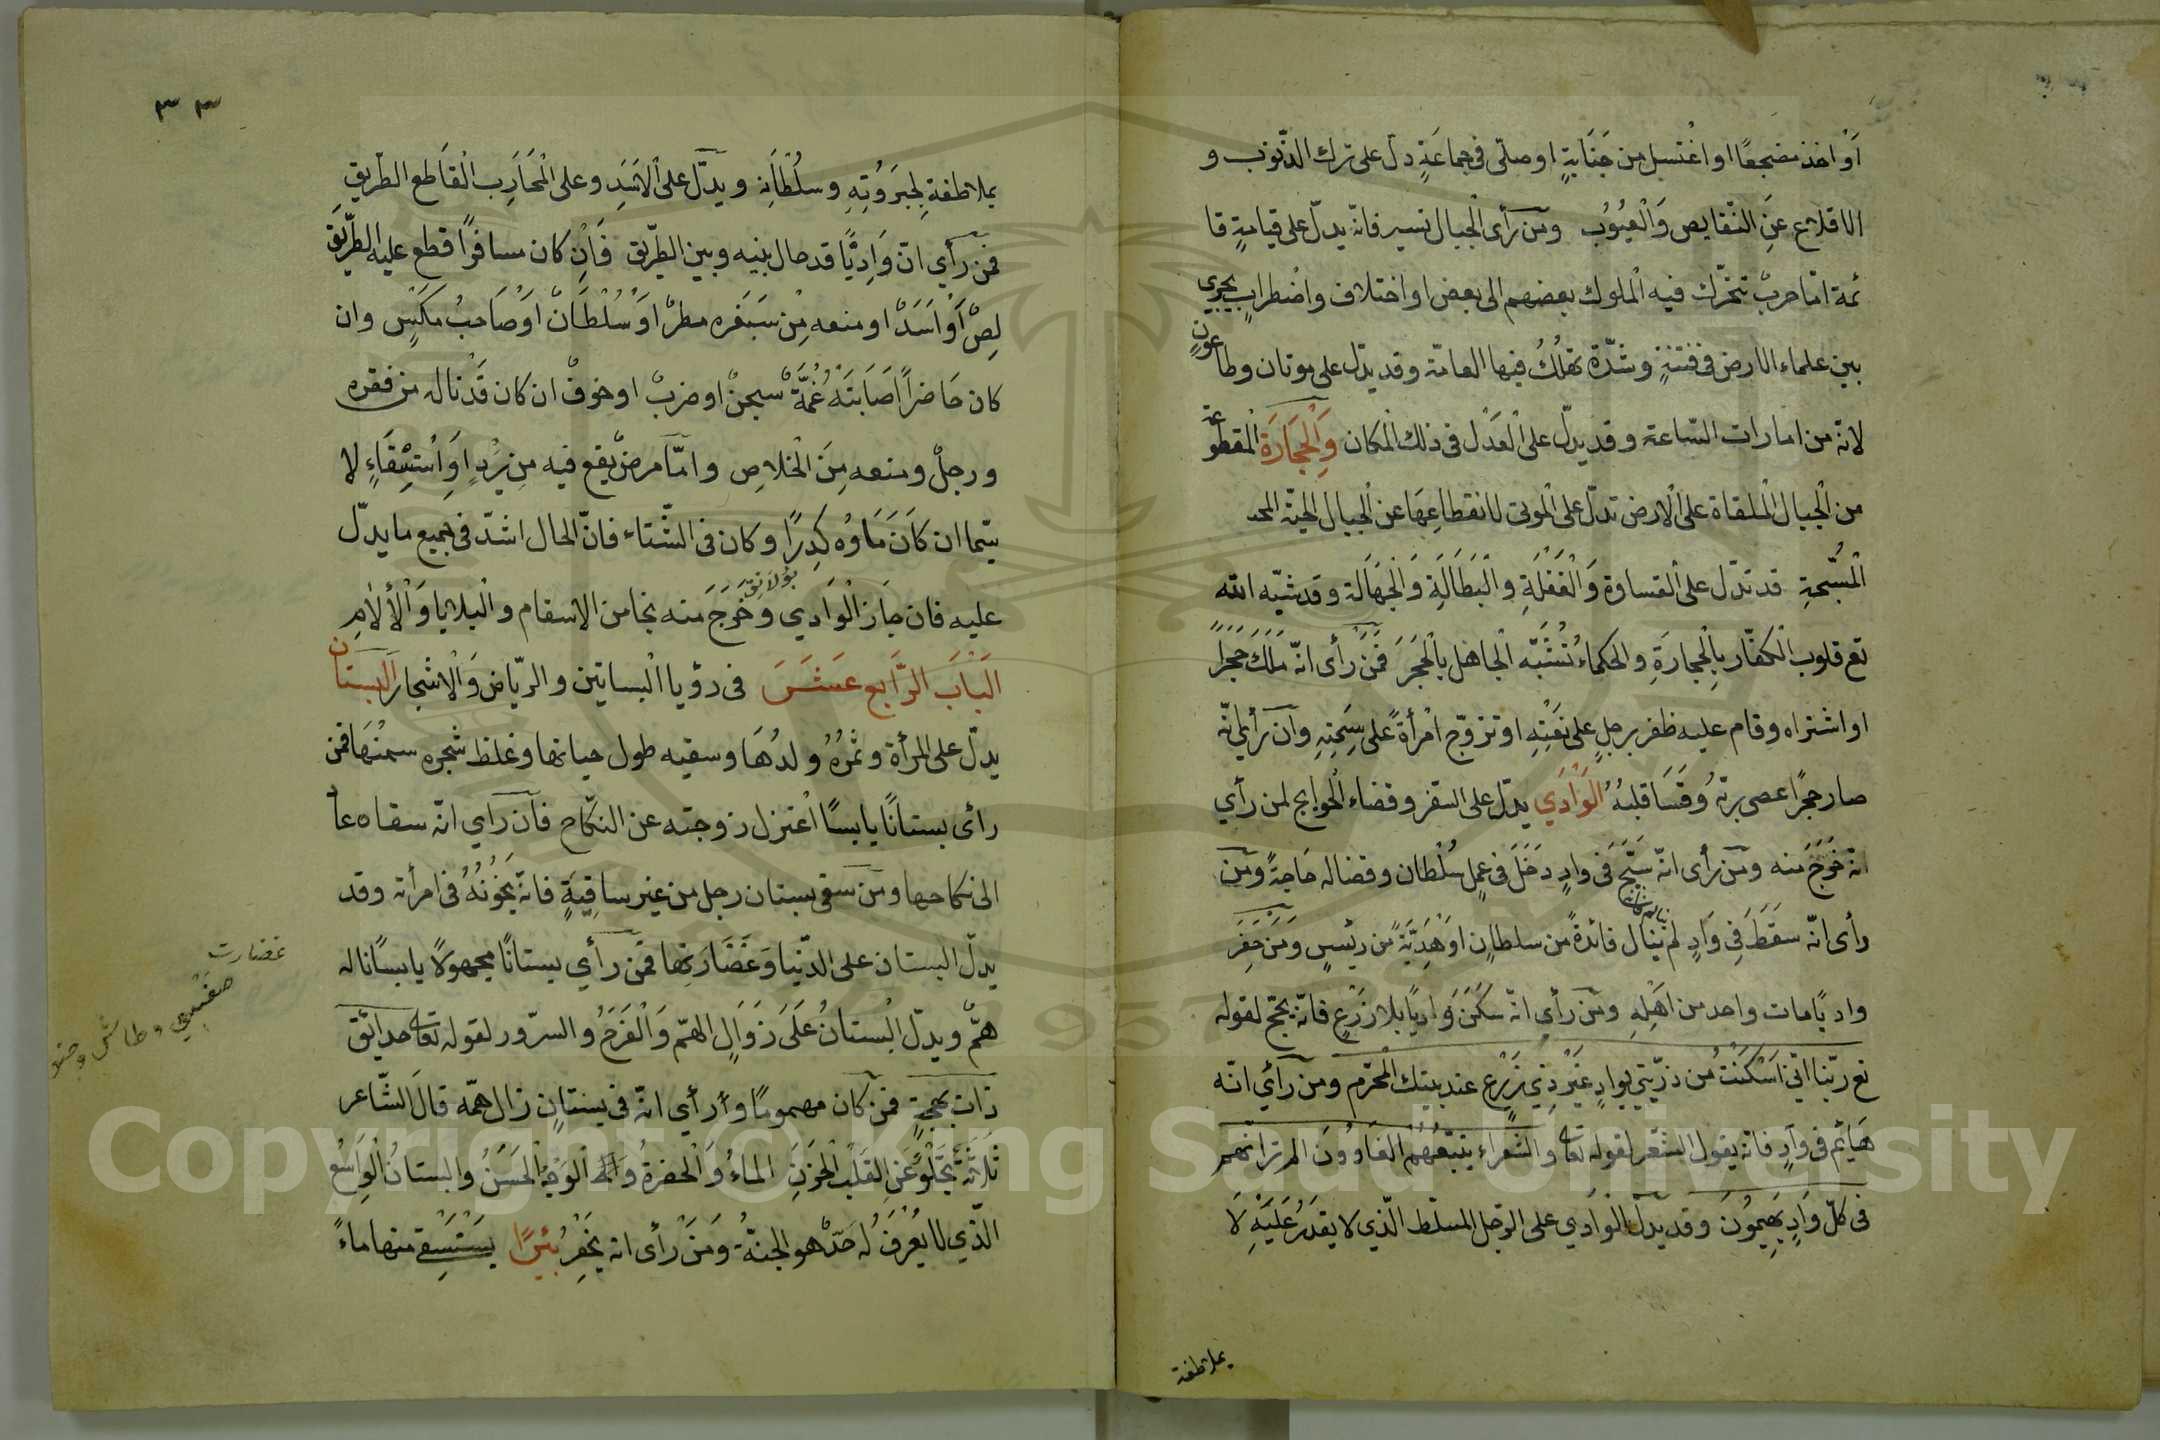 اَوْ اخذ مضجعًا او اغْتسل من جَنَابةٍ او صلّى فى جماعَةٍ دلّ على ترك الذّنوب و
الاقلاع عَنِ النّقايص وَالْعيُوُب ومن رأى الجبال تسير فانّه يدلّ على قيامةٍ قا
ئمة امّا حربْ تتحرّك فيه الْملوك بعضهم الى بعض او اختلاف واضْطرابٍ يجرى
بين علماء الارض فى فتنةٍ وشدّة تهْلُكُ فيها العامّة وقد يدّل على موتان وطاعونٍ
لانّه من امارات السّاعة وقد يدلّ على الْعَدْل فى ذلك المكان وَالْحِجَارَة المقطوعة
من الْجبال الْملقاة على الْارض تدلّ على الْموتى لانقطاعِهَا عن الْجبال الحيّة
الْمُسّبحةِ قد تدّل على القساوة وَالْغَفْلَةِ والْبَطَالَةِ وَالْجهَالَة وقد شبّه الله
تع قلوب الْكفّار بِالْحِجارَةِ والحكماء تُشْبّه الْجاهل بالْحجَرَ فَمَنْ رأى انّه مَلَكَ حَجَرًا
او اشتراه وقام عليه ظفر برجلٍ على نَعْتِهِ او تزوّج امْرأةً على سِيمَتِهِ وان رأى انّه
صار حجرًا عصى ربّهُ وَقَسَا قلبهُ الْوَادَي يدّل على السّفر وقضاء الْحوايج لمن رأى
انّه خَرَجَ منه ومن رأى انّه سَبَّحَ فى وادٍ دَخَلَ فى عملِ سُلْطان وقضاله حَاجةً ومن
رأى انّه سَقَطَ فِى وَادٍ لم ينال فائدةً من سلطانٍ اوَ هَدِيّةً من رئيسٍ وَمَن حَفَرَ
واديًا مات واحد من اهْلِهِ ومن رأى انّه سَكَنَ وَاديًا بلا زَرْعٍ فانّه يحّج لقوله
تع ربّنا انّى اَسْكَنْتُ من ذرّيّتي بِوادٍ غَيْرِ ذِي زَرْعٍ عند بيتك الْمحّرم ومن رَأي انّه
هَايم فى وادٍ فانّه يقول الشّعر لقوله تعا والشّعراء يتبّعهُمُ الغَاوُونَ الم تر انّهم
فى كلّ وَادٍ يَهِيمُونَ وقد يدلّ الْوادَي على الرّجل المسلّط الّذي لا يقدرُ عَليْهِ لَا
بملاطفة
٣٣
بملاطفةِ لِجبَروُتِهِ وسُلْطَانِهِ ويدّل على الاسَدِ وعلى الْمحَارِب الْقاَطع الطّريق
فمن رأى انّ وَادِيًا قد حال بينه وبين الطّريق فَاْن كان مسافرًا قطع عليه الطّريق
لِصٌ أَوْ أسَدْ او منعه مِنْ سَفره مطرْ اوْ سُلْطَانْ اوْ صَاحبُ مَكسٍ وان
كان حَاضراً اَصَابَتْهُ غُمَّةْ سجنْ او ضربْ او خوفْ ان كان قدْ ناله من فقره
ورجلْ ومنعه مِنَ الْخلاصِ وامّا مرضْ يقع فيه مِن بَرْدٍ اوِ اسْتِسْقَاءٍ لا
سّيما ان كَانَ مَاوُه كدِرًا وكان فى الشّتاء فانّ الحال اشدّ فى جميع ما يدلّ
عليه فان جاز الْوَادي وَخَرَجَ منه نجا من الاسقام والْبلايا وَالْألامِ
بولانق
اَلْبَاب الرَّابع عشَرَ فى رؤيا الْبساتين والرّياض وَالْاشجار اَلْبستان
يدلّ على المرأة وثمرُهُ ولدُهَا وسقيه طول حياتها وغلظ شجره سمنُهَا فمن
رأى بستانًا يابسًا اعْتزل زوجته عن النكاح فَان رأي انّه سقاه عا
الى نكاحها ومن سقى بستان رجل من غير ساقيةٍ فانّه يخُونُهُ فى امرأته وقد
يدلّ البستان على الدّنيا وَغَضَارَتِها فمن رأي بستانًا مجهولًا يابسًا ناله
غضارت
همٌّ ويدلّ الْبستانُ عَلَى زوَالِ الهمّ وَالْفَرَحُ والسرّور لقوله تعا حدائق
ذات بهجةٍ فمن كان مهمومًا وأرأي انّه فى بستانٍ زال همّه قالَ الشّاعر
ثَلَاثَةٌ تجْلُو عَنِ الْقلْب الْحزن الماءُ وَالْخضرةُ وَالْوَجْهُ الْحَسَنُ والبستانُ الْواسعُ
الّذي لا يُعْرَفُ لَه حَدٌّ هو الجنّةُ وَمَنْ رأى انه يحْفِرُ بئرًا يَسْتَسْقى منها ماءً